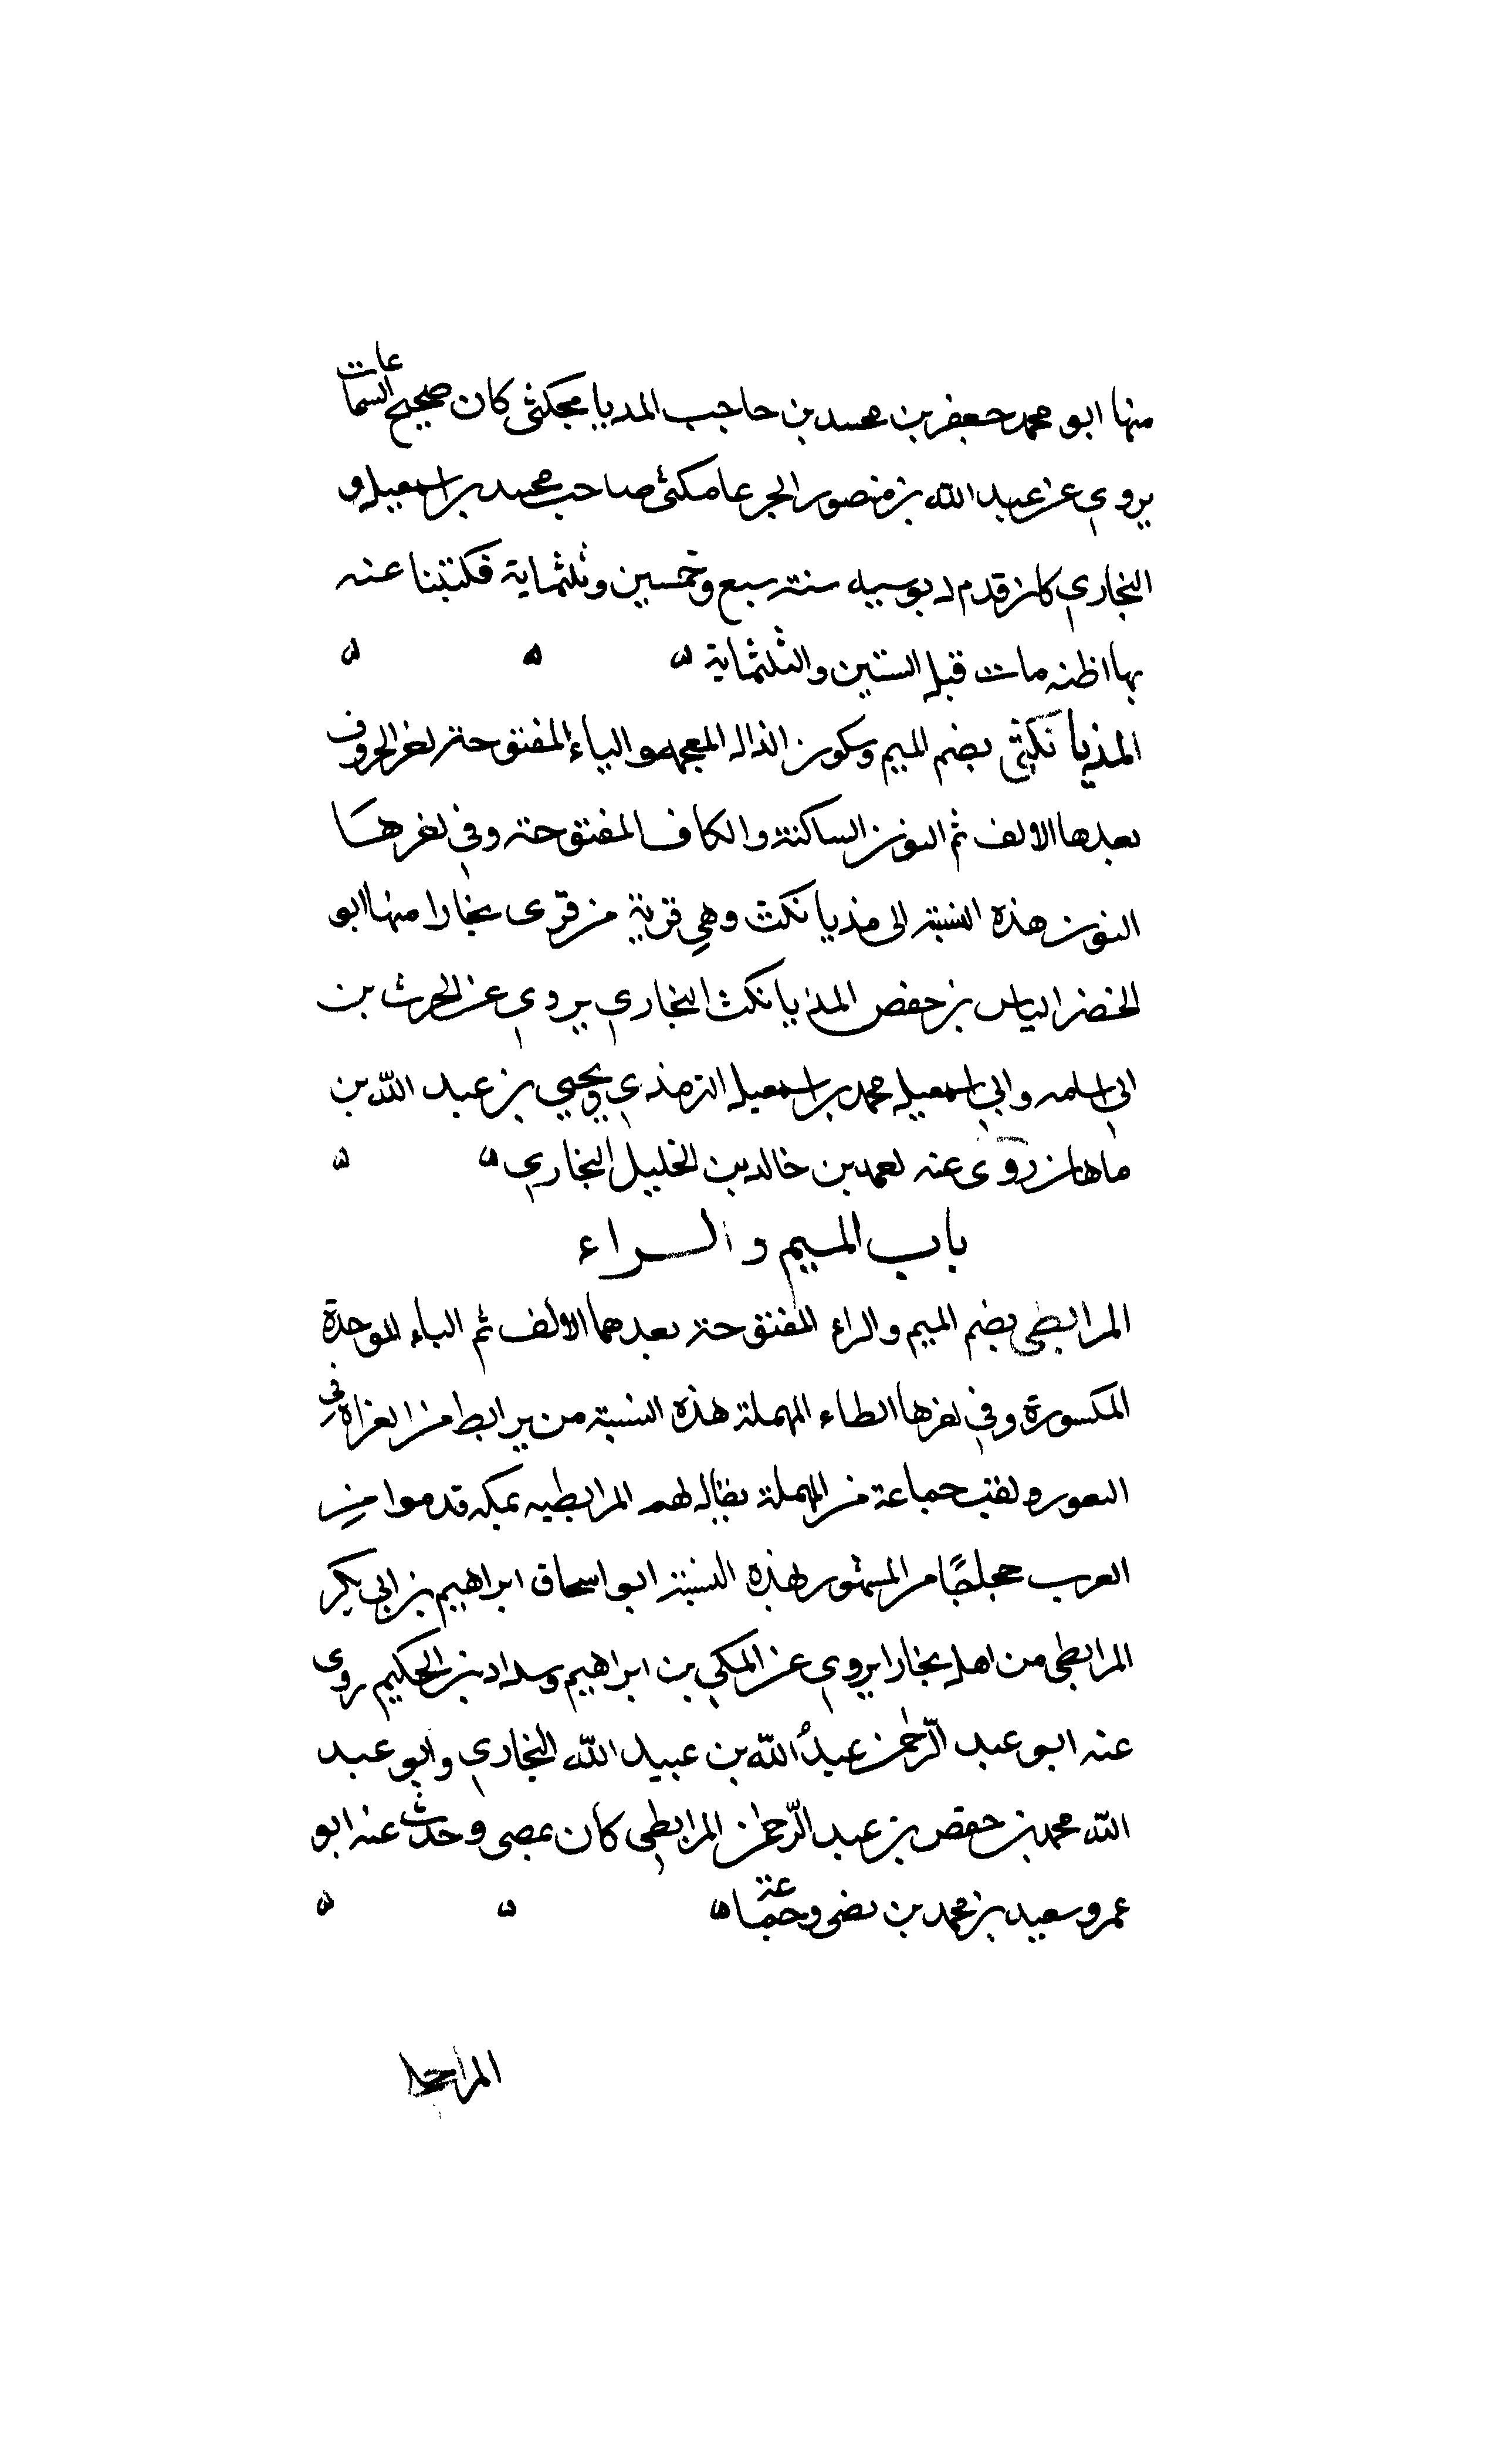 منها ابو محمد جعفر بن محمد بن حاجب المديا مجكثى كان صحيح السماعات
يروي عن عبيد الله بن منصور صاحب محمد بن اسمعيل و
البخاري كان قدم دبوسيه سنة سبع وخمسين وثلثماية فكتبنا عنه
بها اظنه مات قبل الستين والثلثماية
المذيا نكثى بضم الميم وسكون الذال المعجمه والياء المفتوحة لخر الحروف
بعدها الالف ثم النون الساكنة والكاف المفتوحة وفي لخرها
النون هذه النسبة الى مذيا نكث وهي قرية من قرى بخارا منها ابو
الخضر الياس بن حفص المذيا نكث البخاري يروي عن الحرث بن
ابي اسلمه وابي اسمعيل محمد بن اسمعيل الترمذي ويحيى بن عبد الله بن
ماهان روى عنه خالد بن الخليل البخاري
باب الميم والراء
المرابطي بضم الميم والراء المفتوحة بعدهما الالف ثم الباء الموحدة
المكسورة وفي لخرها الطاء المهملة هذه النسبة من يرابط من الغزاة في
الثغور ولقب جماعة من المهملة يقال لهم المرابطيه بمكه قدموا من
العرب المشهور بهذه النسبة ابو اسحاق ابراهيم بن ابي بكر
المرابطي من اهل بخارا يروي عن المكي بن ابراهيم وسداد بن الحكيم روى
عنه ابو عبد الرحمن عبد الله بن عبيد الله البخاري وابو عبد
الله محمد بن حفص بن عبد الرحمان المرابطي كان بمصى وحدث عنه ابو
عمرو سعيد بن محمد بن نصى وجماعة